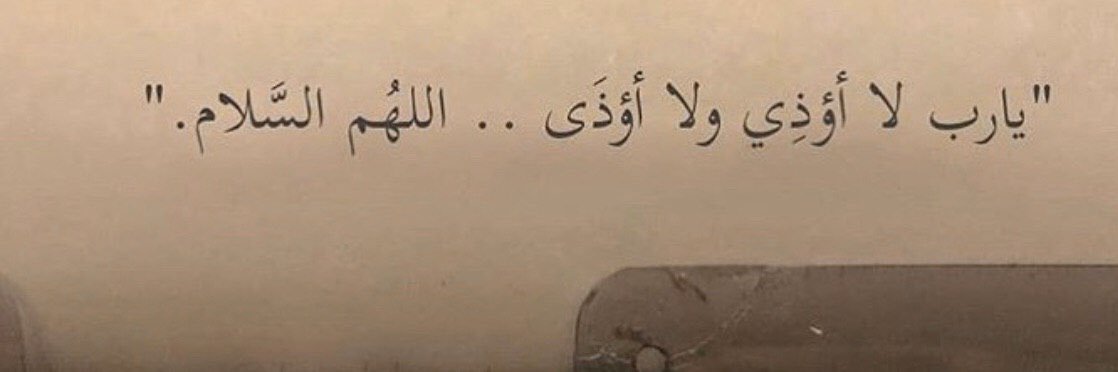 "يارب لا أؤذِي ولا أؤذَى .. اللهُم السَّلام."